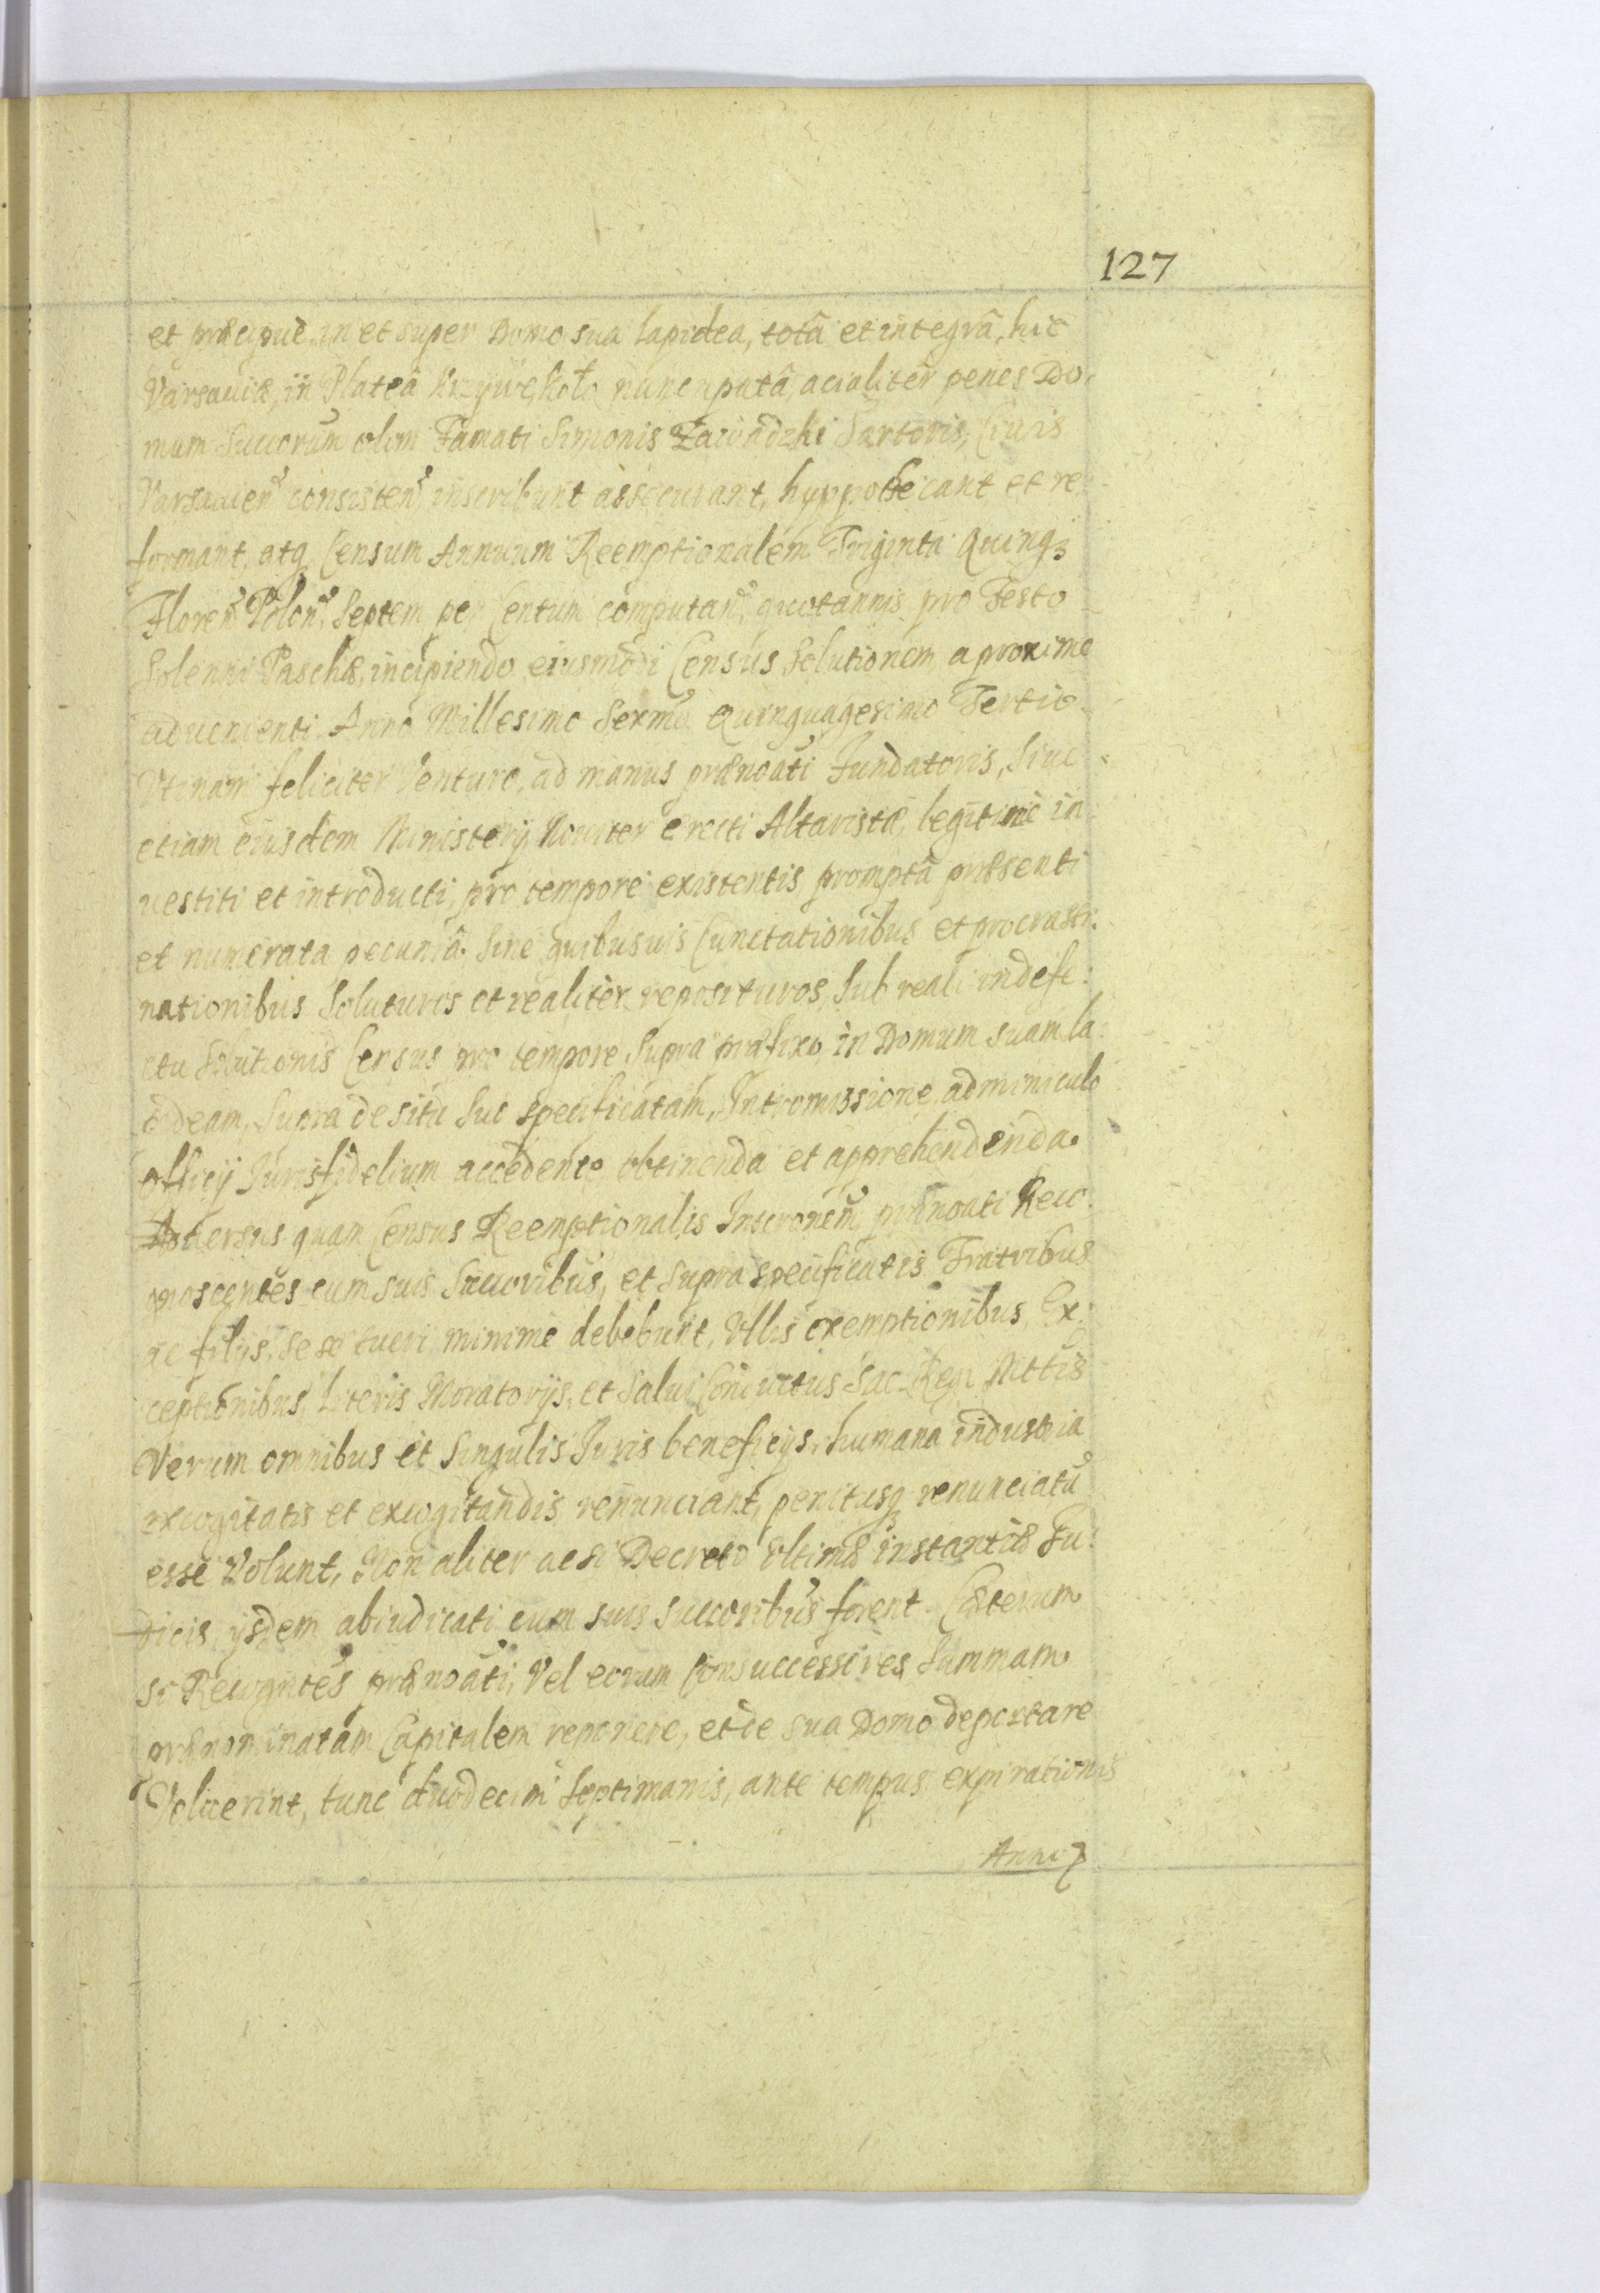 127
et præcipuè, in et super Domo sua lapidea, totâ et integrâ, hic
Varsauiæ, in Plateâ Krzywekoło nuncupatâ, acialiter penes Do,
mum Succorum olim Famati Simonis Zawadzki Sartoris, Ciuis
Varsauien̄ consisten̄ inscribunt assecurant, hyppothecant et re
formant, atq Censum Annuum Reemptionalem Triginta Quinqꝫ
Floren̄ Polon̄, Septem per Centum computan̄, quotannis pro Festo
Solenni Paschæ, incipiendo eiusmodi Census Solutionem, a proxime
aduenienti Anno Millesimo Sexm̄o Quinquagesimo Tertio
Vtinam feliciter Venturo, ad manus prænoāti Fundatoris, Siue
etiam eiusdem Ministerij Nouiter erecti Altaristæ, legitimè in
uestiti et introducti, pro tempore existentis, promptâ præsenti
et numerata pecuniâ. Sine quibusuis Cunctationibus et procrasti:
nationibus Soluturos et realiter reposituros, Sub reali indefe:
ctu Solutionis Census pro tempore Supra præfixo, in Domum suam la:
pideam, Supra de situ Suo Specificatam, Intromissione, adminiculo
Officij Iurisfidelium accedente obtinenda et apprehendenda.
Aduersus quam Census Reemptionalis Inscronem̄ prænoati Reco:
gnoscentes cum suis Succoribus, et Supra specificatis Fratribus
ac filijs, se se tueri minime debebunt, Vllis exemptionibus, Ex:
ceptionibus, Literis Moratorijs, et Salui Conductus Sac. Regi Mttis
Verum omnibus et Singulis Iuris beneficijs, humana industria
excogitatis et excogitandis renunciant, penitusqꝫ renunciatū
esse Volunt, Non aliter ac si Decreto Vltimæ instantiæ Iu:
dicis ijsdem abiudicati cum suis Succoribus forent. Cæterum
si Recogntes prænoāti, Vel eorum Consuccessores Summam
prænominatam Capitalem reponere, et de sua Domo deportare
Voluerint, tunc duodecim Septimanis, ante tempus expirationis
Anni